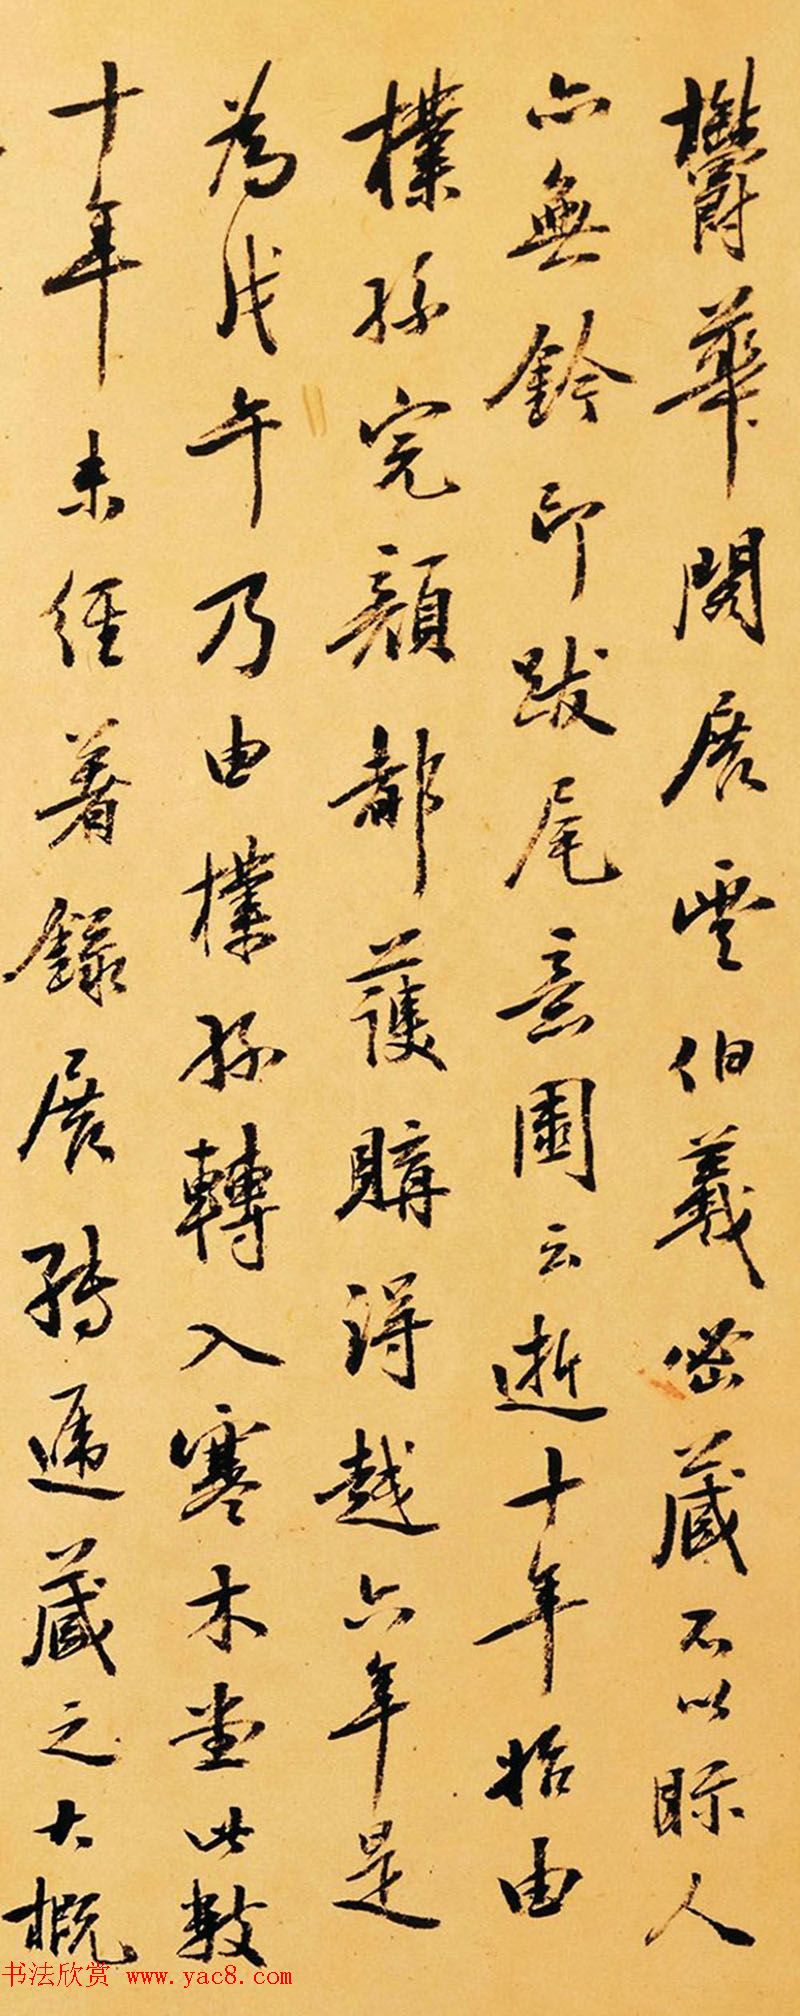 鬱華閣展雲伯羲密藏不以眎人
亦無鈐印跋尾意園云逝十年始由
樸孫完顏都護購得越六年是
為戊午乃由樸孫轉入寒木堂此數
十年未經著錄展轉遞藏之大概
书法欣赏 www.yac8.com